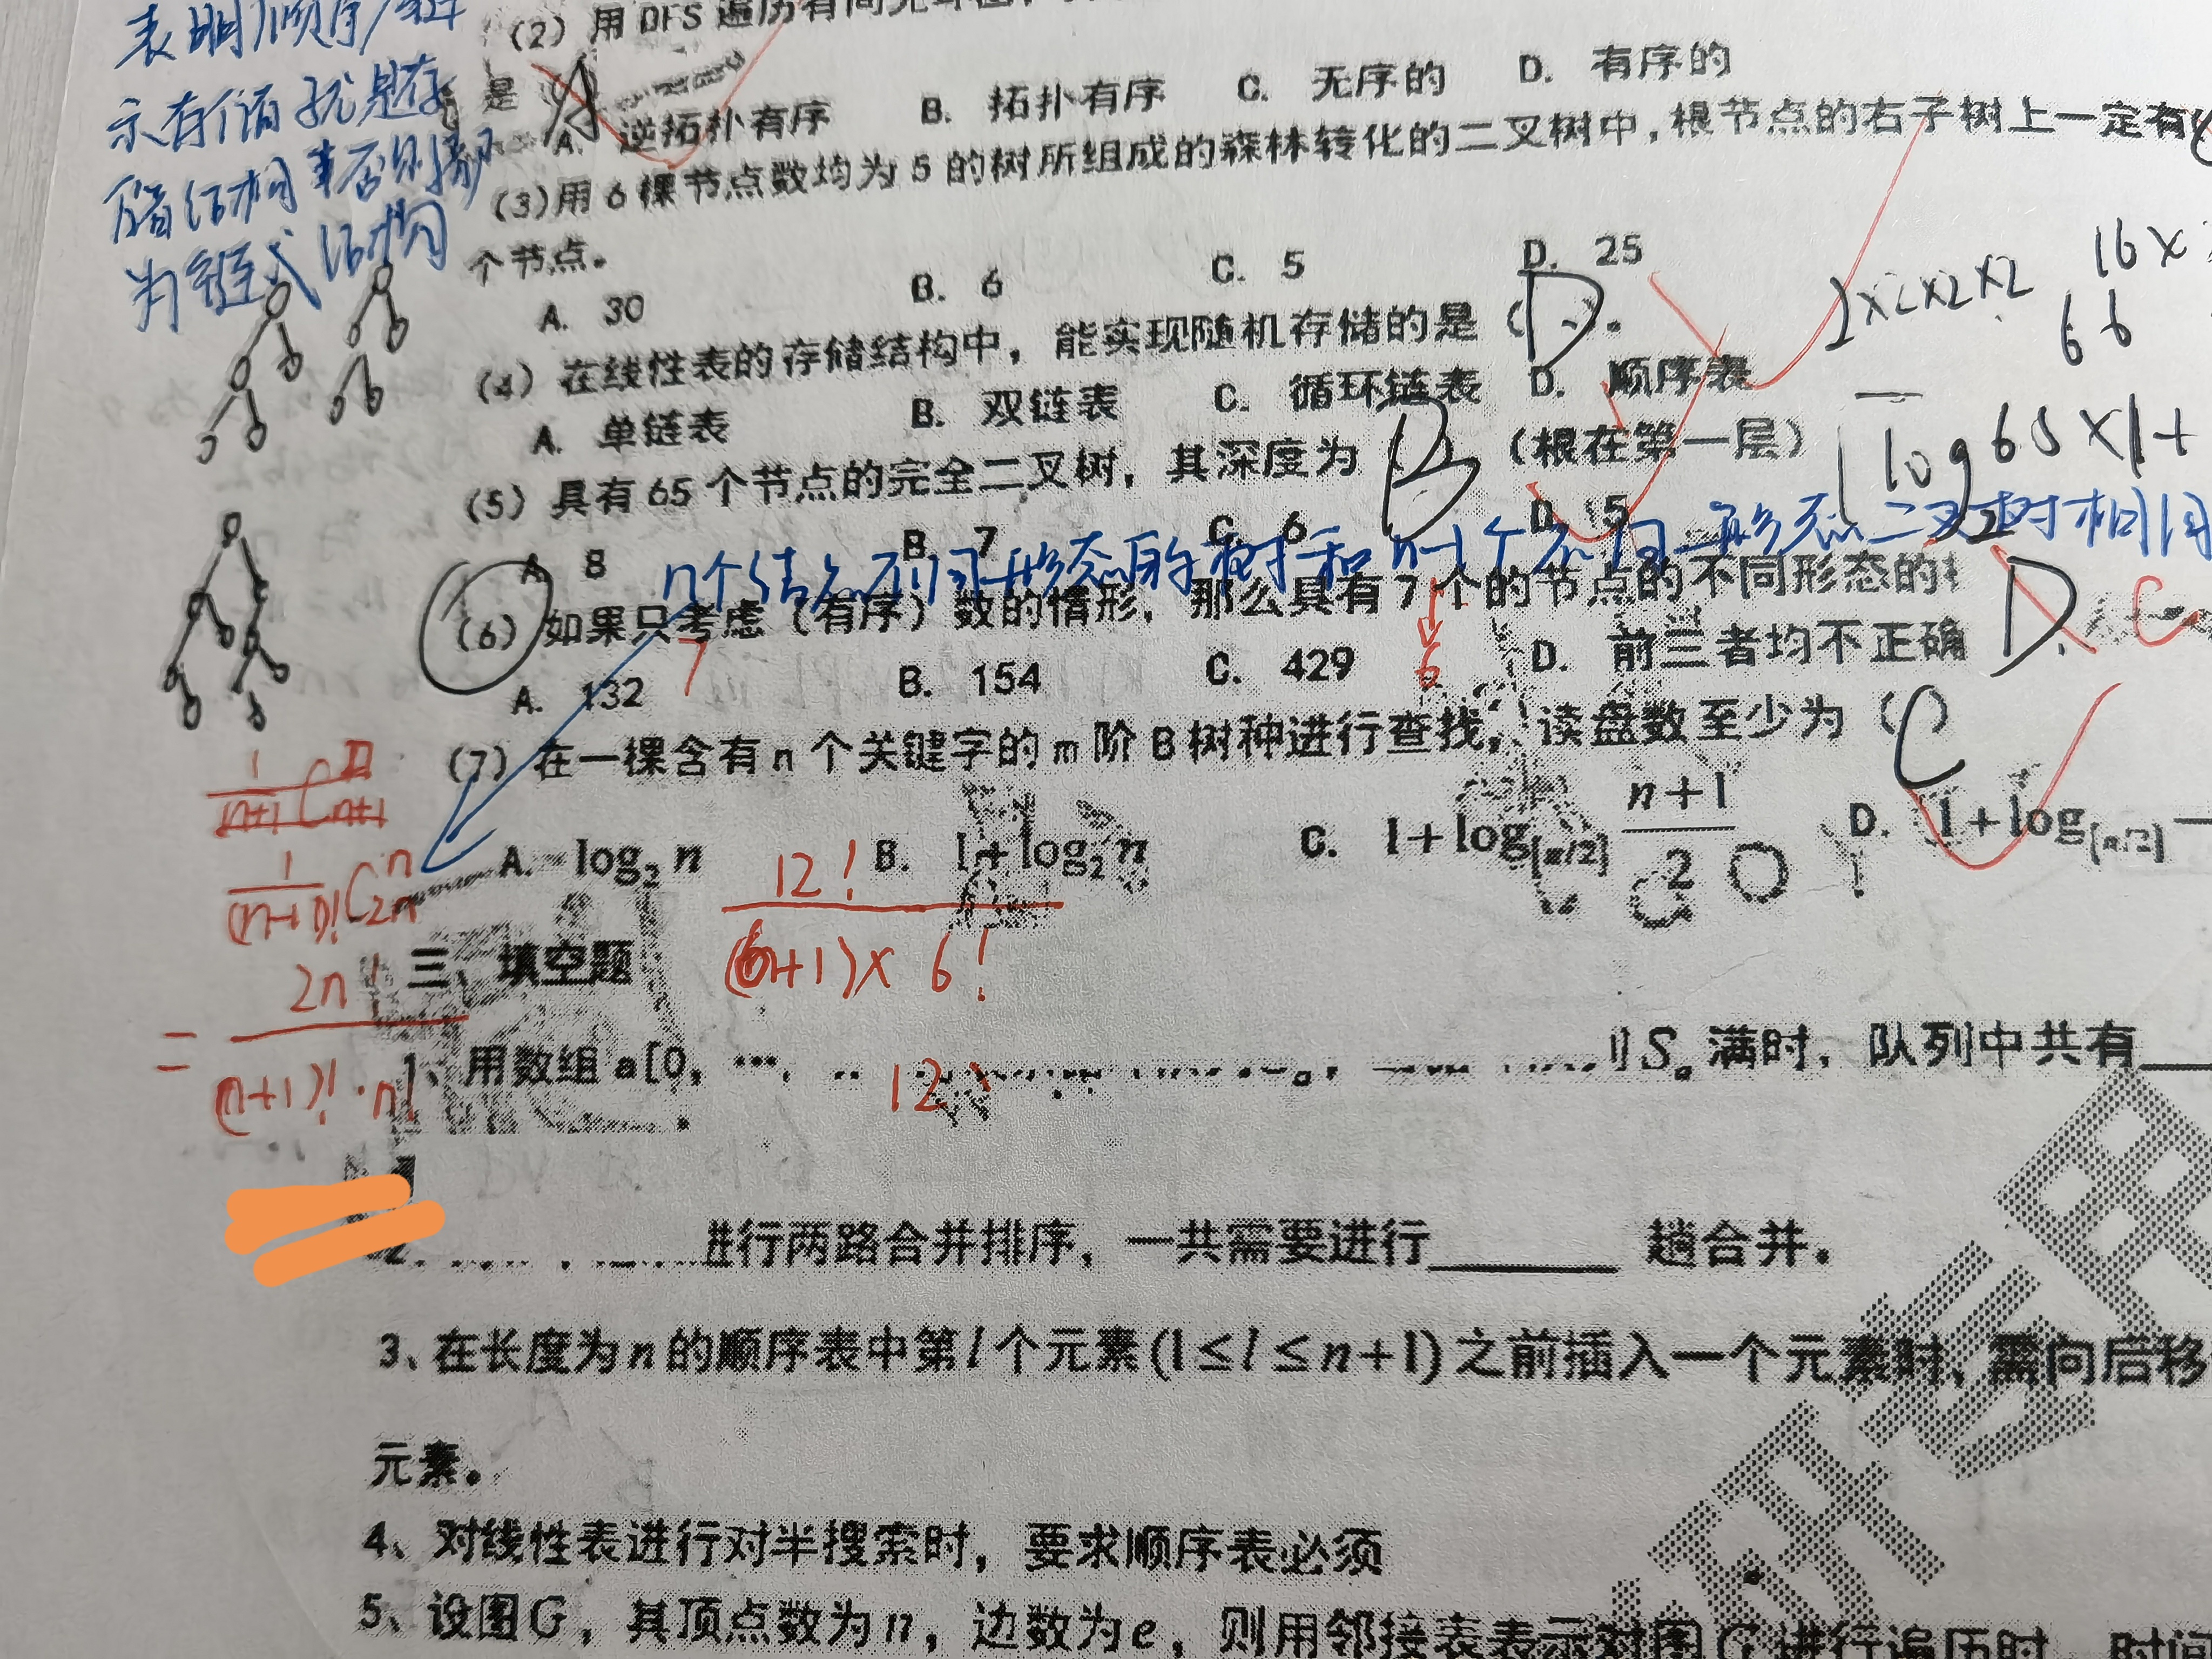 表明顺序存
示存储就是存
储结构 否则都
为链式结构
(2) 用DFS遍历有向无环图,
是 A
A. 逆拓扑有序 B. 拓扑有序 C. 无序的 D. 有序的
(3)用6棵节点数均为5的树所组成的森林转化的二叉树中,根节点的右子树上一定有(
个节点。
A. 30 B. 6 C. 5 D. 25
2×2×2×2 16×
66
(4) 在线性表的存储结构中, 能实现随机存储的是 (D)。
A. 单链表 B. 双链表 C. 循环链表 D. 顺序表
(5) 具有65个节点的完全二叉树, 其深度为 B (根在第一层)
log 65 ×1+
A. 8 B. 7 C. 6 D. 5
n个结点不同形态的树和n-1个不同形态二叉树相同
(6) 如果只考虑 (有序) 数的情形, 那么具有7个的节点的不同形态的 D. C
A. 132 7 B. 154 C. 429 6 D. 前三者均不正确
(7) 在一棵含有n个关键字的m阶B树种进行查找, 读盘数至少为 (C)
A. log₂ n B. 1+log₂ n C. 1+log[n/2] (n+1)/2 D. 1+log[n/2]
1/(n+1) C n n+1
1/(n+1)! C n 2n
= 2n!/((n+1)!·n!
12!/((6n+1)× 6!
三、填空题
1、用数组a[0, …, 12 S。满时, 队列中共有
2. 进行两路合并排序, 一共需要进行______ 趟合并。
3、在长度为n的顺序表中第l个元素(1≤l≤n+1)之前插入一个元素时, 需向后移
元素。
4、对线性表进行对半搜索时, 要求顺序表必须
5、设图G, 其顶点数为n, 边数为e, 则用邻接表表示对图G进行遍历时, 时间